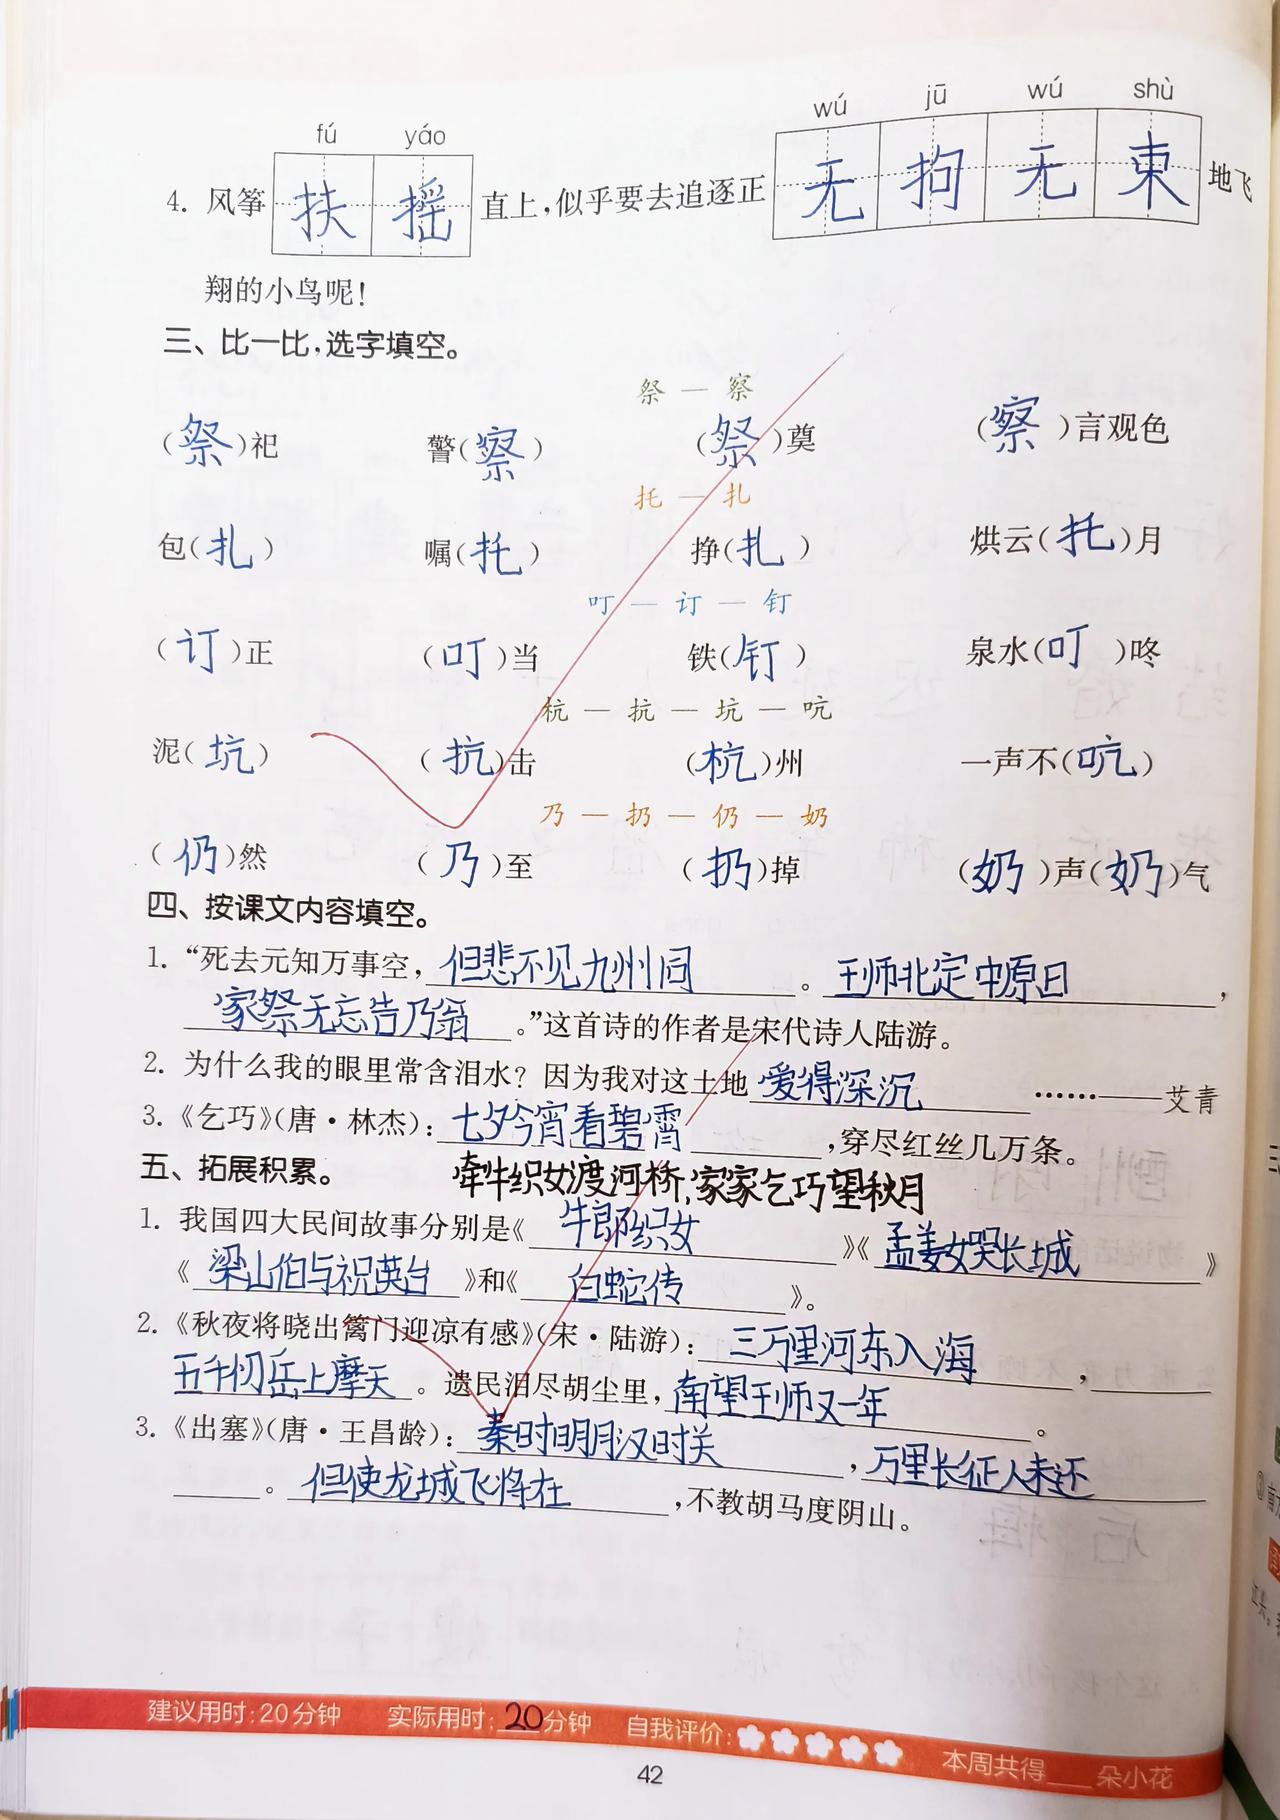 fú yáo wú jū wú shù
4. 风筝扶摇直上,似乎要去追逐正无拘无束地飞
翔的小鸟呢!
三、比一比,选字填空。
祭 — 察
(祭)祀 警(察) (祭)奠 (察)言观色
托 — 扎
包(扎) 嘱(托) 挣(扎) 烘云(托)月
叮 — 订 — 钉
(订)正 (叮)当 铁(钉) 泉水(叮)咚
杭 — 抗 — 坑 — 吭
泥(坑) (抗)击 (杭)州 一声不(吭)
乃 — 扔 — 仍 — 奶
(仍)然 (乃)至 (扔)掉 (奶)声(奶)气
四、按课文内容填空。
1. “死去元知万事空,但悲不见九州同。王师北定中原日,
家祭无忘告乃翁。”这首诗的作者是宋代诗人陆游。
2. 为什么我的眼里常含泪水?因为我对这土地爱得深沉……——艾青
3.《乞巧》(唐·林杰):七夕今宵看碧霄,穿尽红丝几万条。
五、拓展积累。 牵牛织女渡河桥,家家乞巧望秋月
1. 我国四大民间故事分别是《牛郎织女》《孟姜女哭长城》
《梁山伯与祝英台》和《白蛇传》。
2.《秋夜将晓出篱门迎凉有感》(宋·陆游):三万里河东入海,
五千仞岳上摩天。遗民泪尽胡尘里,南望王师又一年。
3.《出塞》(唐·王昌龄):秦时明月汉时关,万里长征人未还
。但使龙城飞将在,不教胡马度阴山。
建议用时:20分钟 实际用时:20分钟 自我评价: 本周共得 朵小花
42